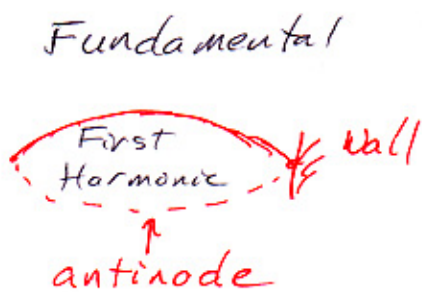 Fundamental
First
Harmonic
Wall
antinode